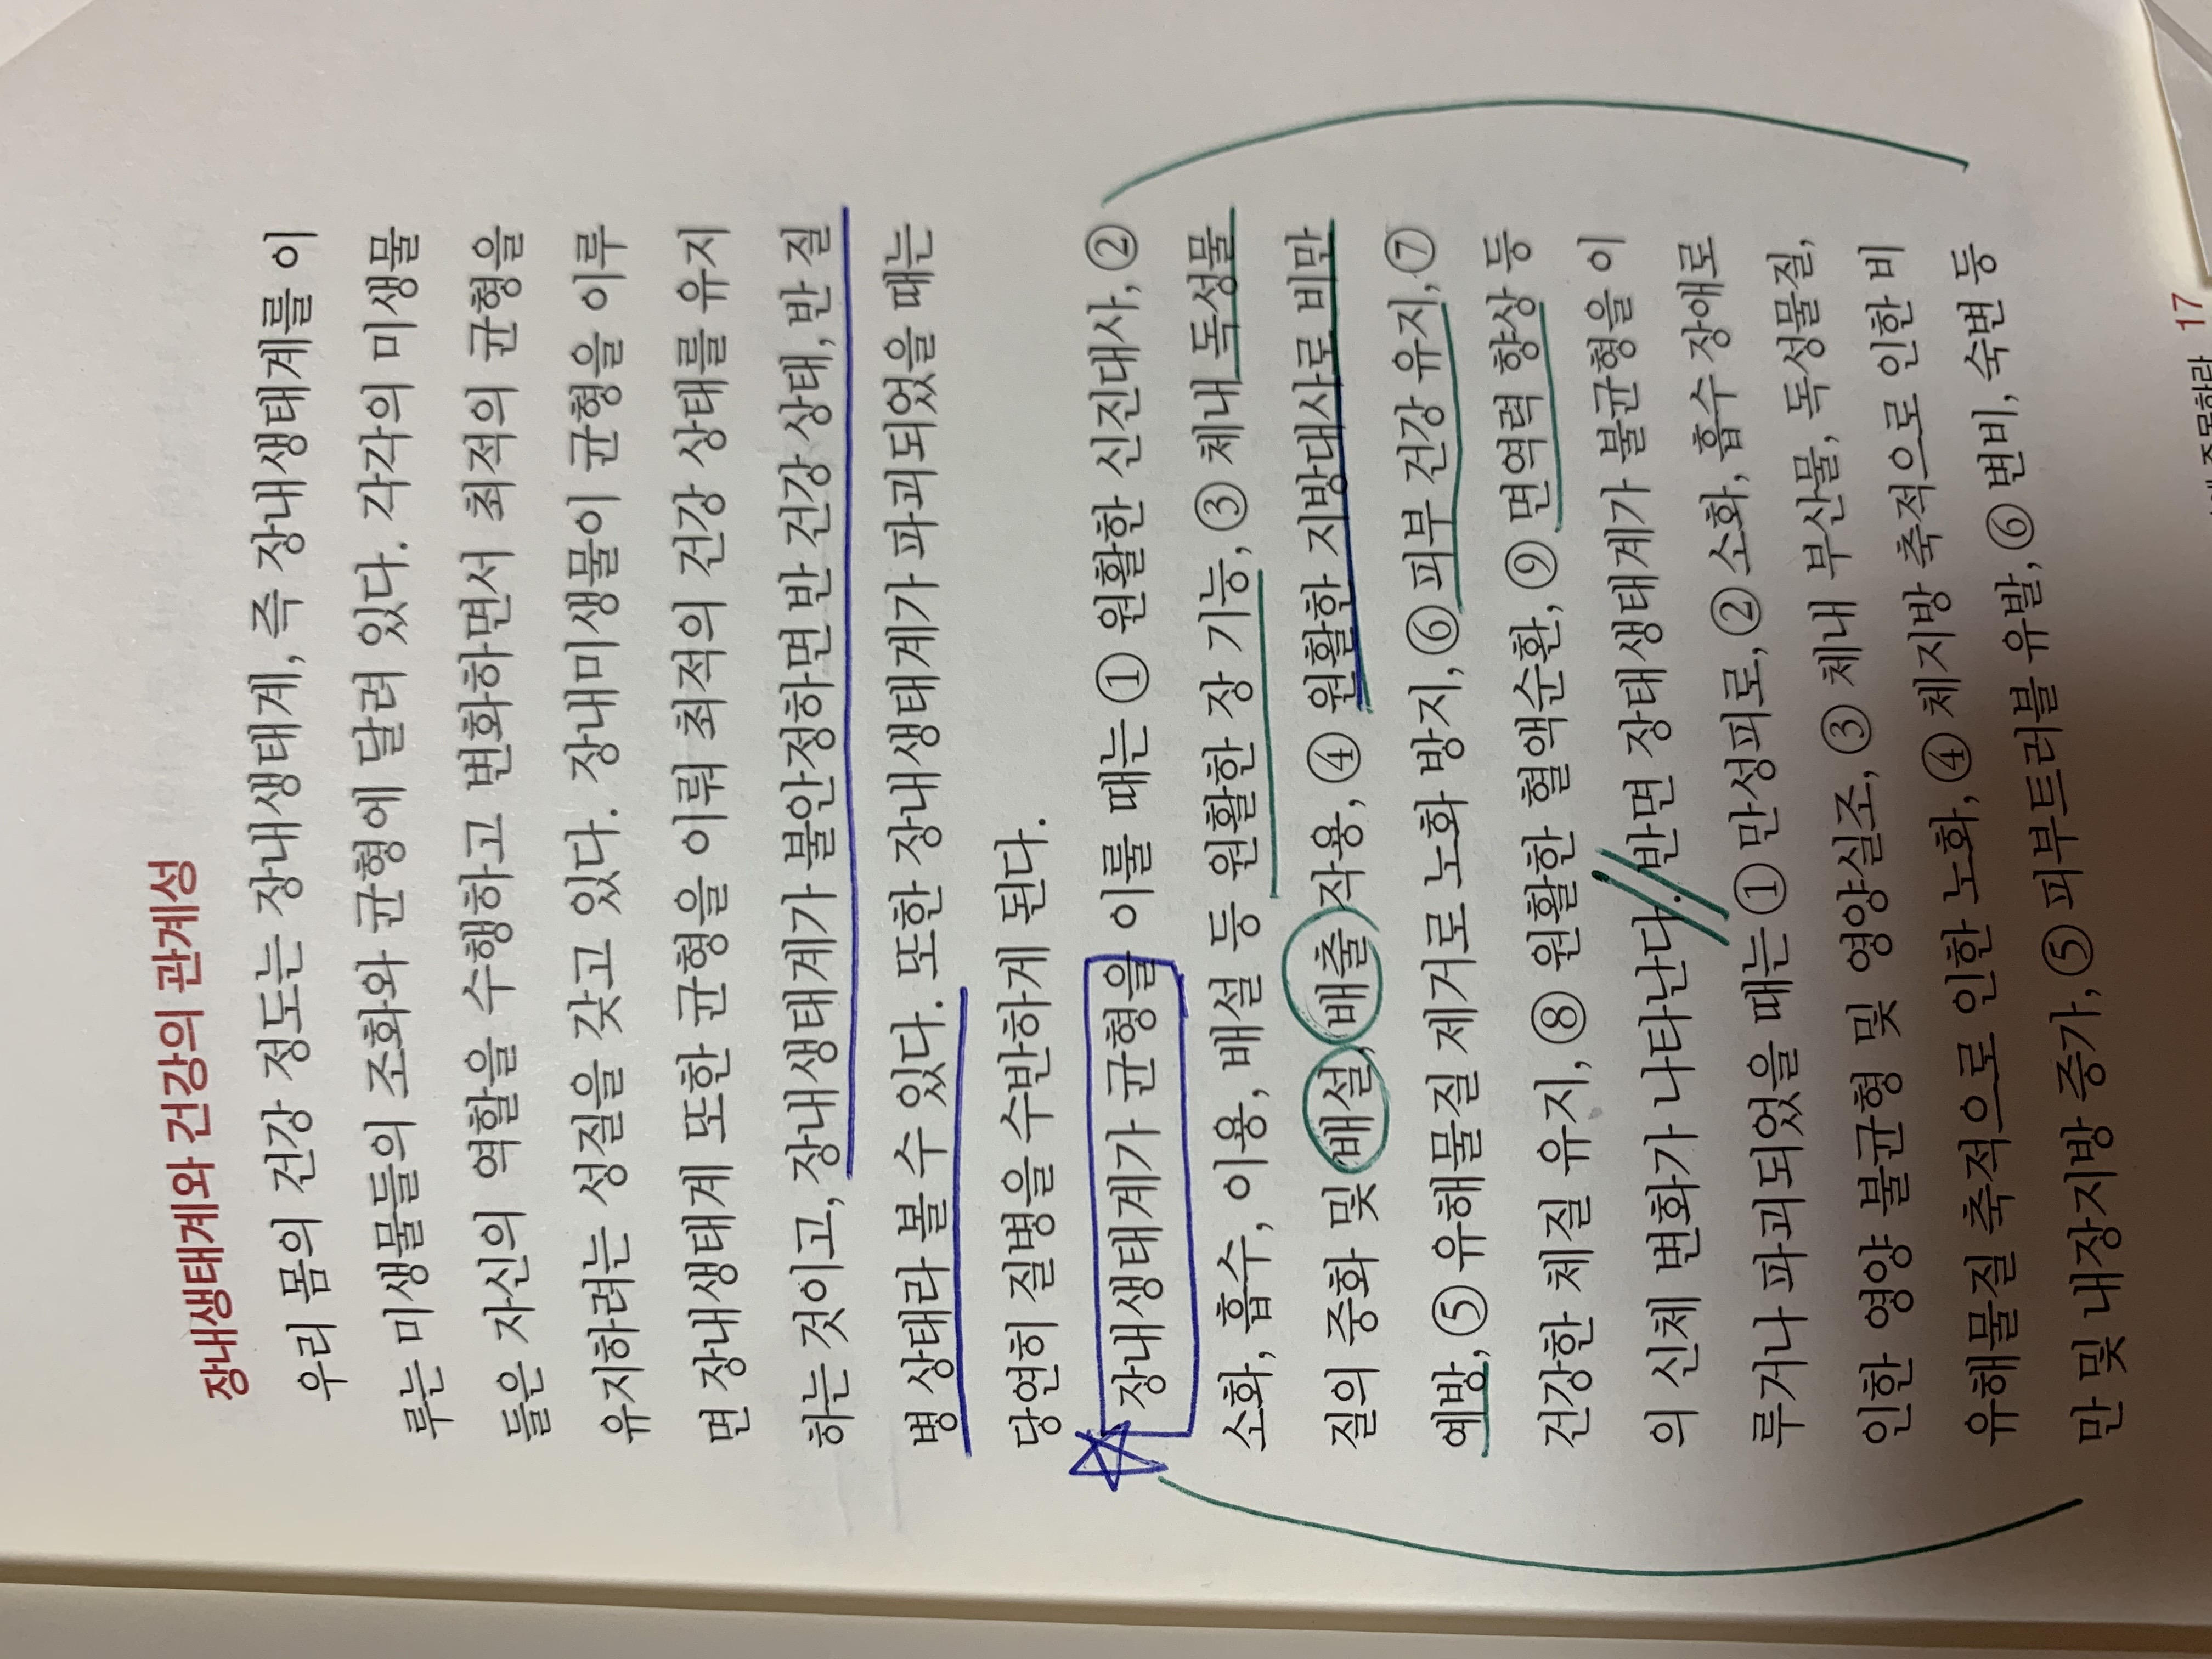 장내생태계와 건강의 관계성
우리 몸의 건강 정도는 장내생태계, 즉 장내생태계를 이
루는 미생물들의 조화와 균형에 달려 있다. 각각의 미생물
들은 자신의 역할을 수행하고 변화하면서 최적의 균형을
유지하려는 성질을 갖고 있다. 장내미생물이 균형을 이루
면 장내생태계 또한 균형을 이뤄 최적의 건강 상태를 유지
하는 것이고, 장내생태계가 불안정하면 반 건강 상태, 반 질
병 상태라 볼 수 있다. 또한 장내생태계가 파괴되었을 때는
당연히 질병을 수반하게 된다.
장내생태계가 균형을 이룰 때는 ① 원활한 신진대사, ②
소화, 흡수, 이용, 배설 등 원활한 장 기능, ③ 체내 독성물
질의 중화 및 배설, 배출 작용, ④ 원활한 지방대사로 비만
예방, ⑤ 유해물질 제거로 노화 방지, ⑥ 피부 건강 유지, ⑦
건강한 체질 유지, ⑧ 원활한 혈액순환, ⑨ 면역력 향상 등
의 신체 변화가 나타난다. 반면 장태생태계가 불균형을 이
루거나 파괴되었을 때는 ① 만성피로, ② 소화, 흡수 장애로
인한 영양 불균형 및 영양실조, ③ 체내 부산물, 독성물질,
유해물질 축적으로 인한 노화, ④ 체지방 축적으로 인한 비
만 및 내장지방 증가, ⑤ 피부트러블 유발, ⑥ 변비, 숙변 등
17